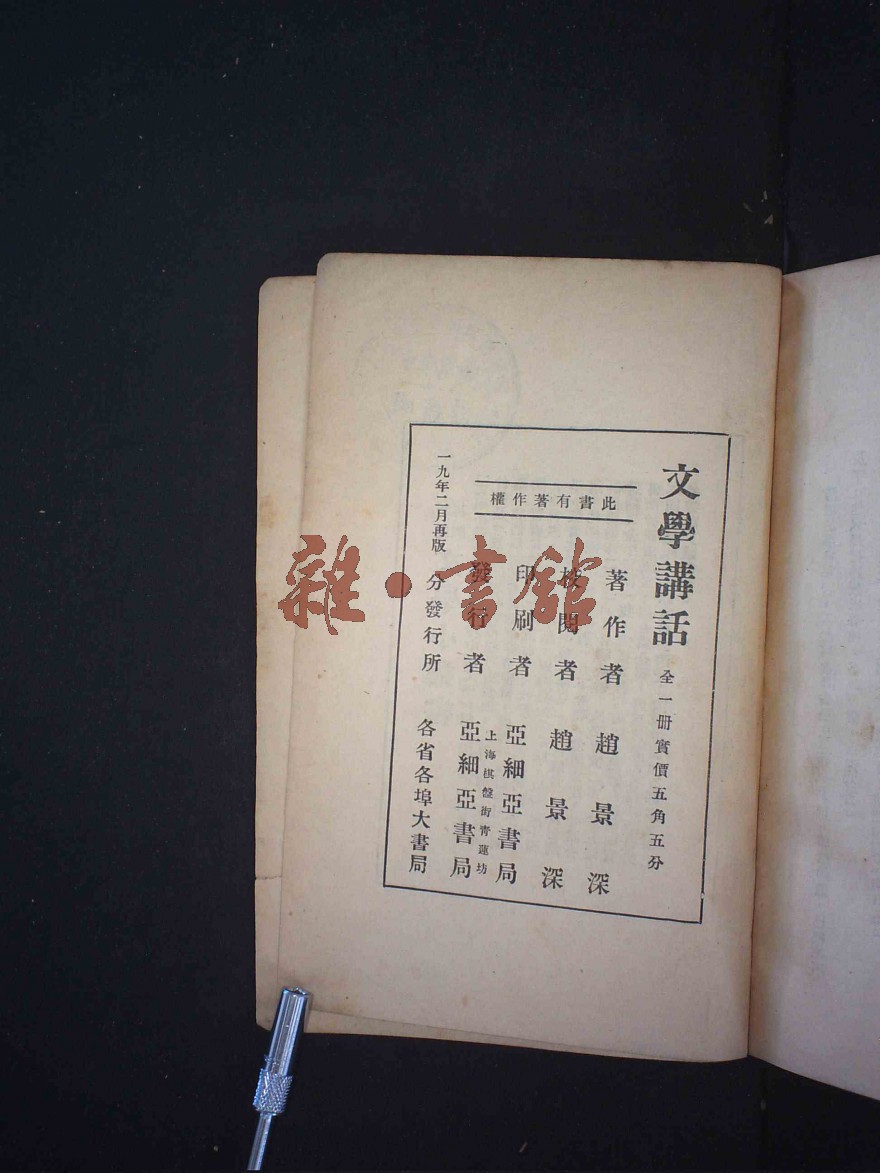 文學講話 全一冊實價五角五分
此書有著作權
著作者 趙景深
校閱者 趙景深
印刷者 亞細亞書局
上海棋盤街青蓮坊
發行者 亞細亞書局
分發行所 各省各埠大書局
一九年二月再版
雜·書館